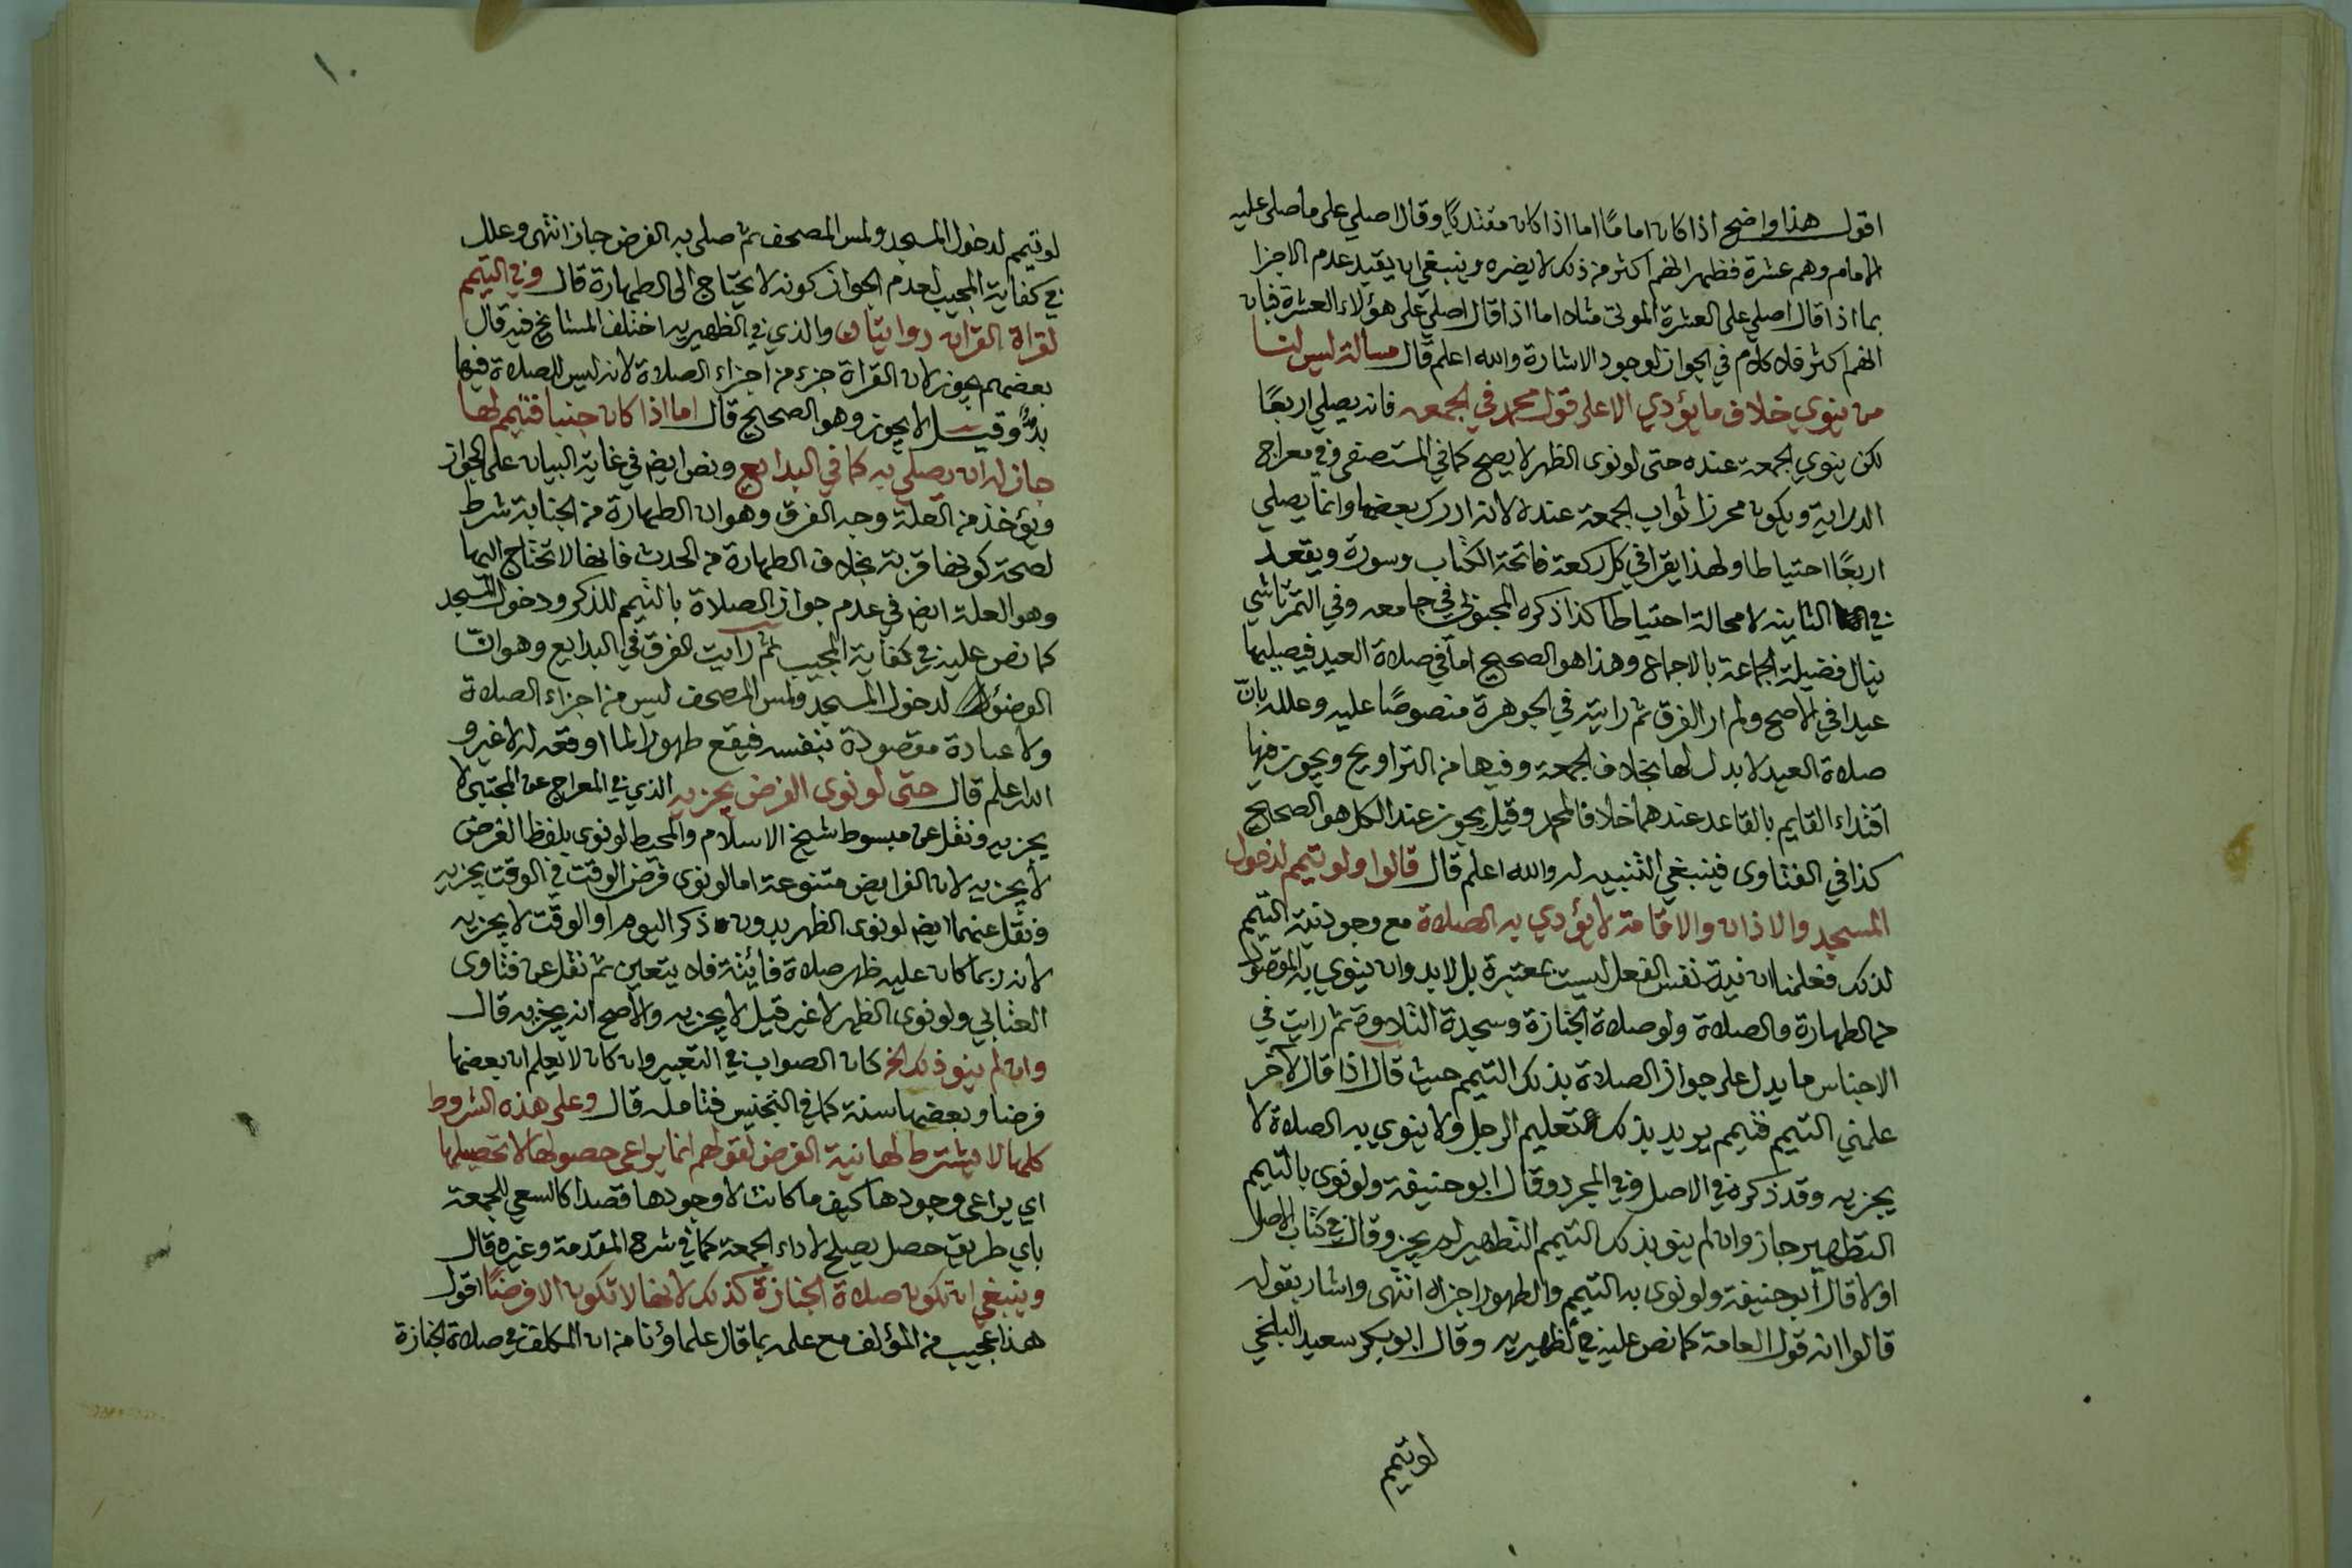 اقول هذا واضح اذا كان اماما اما اذا كان مقتديا وقال اصلي على ما صلى عليه
الامام وهم عشرة فظهر انهم اكثر من ذلك لا يضره وينبغي ان يقيد عدم الاجزا
بما اذا قال اصلي على العشرة الموتى مثلا اما اذا قال اصلي على هؤلاء العشرة فبان
انهم اكثر فلا كلام في الجواز لوجود الاشارة والله اعلم قال مسالة ليس لنا
من ينوي خلاف ما يؤدي الا على قول محمد في الجمعه فانه يصلي اربعًا
لكن ينوي الجمعة عنده حتى لو نوى الظهر لا يصح كما في المستصفى وفي معراج
الدراية ويكون محرزا ثواب الجمعة عنده لانه ادرك بعضها وانما يصلي
اربعًا احتياطا ولهذا يقرا في كل ركعة فاتحة الكتاب وسورة ويقعد
في الثانيه لا محالة احتياطا كذا ذكره المحبوبي في جامعه وفي التمرتاشي
ينال فضيلة الجماعة بالاجماع وهذا هو الصحيح اما في صلاة العيد فيصليها
عيدا في الاصح ولم ار الفرق ثم رايته في الجوهرة منصوصًا عليه وعلله بانّ
صلاة العيد لا بدل لها بخلاف الجمعة وفيها من التراويح ويجوز فيها
اقتداء القايم بالقاعد عندهما خلافا لمحمد وقيل يجوز عند الكل هو الصحيح
كذا في الفتاوى فينبغي التنبيه له والله اعلم قال قالوا ولو تيمم لدخول
المسجد والاذان والاقامة لا يؤدي به الصلاة مع وجود نية التيمم
لذلك فعلمنا ان نية نفس الفعل ليست بمعتبرة بل لا بد وان ينوي به المقصود
من الطهارة والصلاة ولو صلاة الجنازة وسجدة التلاوة ثم رايت في
الاجناس ما يدل على جواز الصلاة بذلك التيمم حيث قال اذا قال الاخر
علمني التيمم فتيمم يريد بذلك التعليم الرجل ولا ينوي به الصلاة لا
يجزيه وقد ذكره في الاصل وفي المجرد وقال ابو حنيفة ولو نوى بالتيمم
التطهير جاز وان لم ينو بذلك التيمم التطهير لم يجز وقال في كتاب الاصل
اولا قال ابو حنيفة ولو نوى به التيمم والطهور اجزاه انتهى واشار بقوله
قالوا انه قول العامة كما نص عليه في الظهيريه وقال ابو بكر سعيد البلخي
لو تيمم
١٠
لو تيمم لدخول المسجد ولمس المصحف ثم صلى به الفرض جاز انتهى وعلل
في كفاية المجيب لعدم الجواز كونه لا يحتاج الى الطهارة قال وفي التيمم
لقراة القران روايتان والذي في الظهيريه اختلف المشايخ فيه قال
بعضهم يجوز لان القراة جزء من اجزاء الصلاة لانه ليس للصلاة فيها
بدٌّ وقيل لا يجوز وهو الصحيح قال اما اذا كان جنبا فتيمم لها
جاز له ان يصلي به كما في البدايع ونص ايضا في غاية البيان على الجواز
ويؤخذ من العلة وجه الفرق وهو ان الطهارة من الجنابة شرط
لصحة كونها قربة بخلاف الطهارة من الحدث فانها لا تحتاج اليها
وهو العلة ايضا في عدم جواز الصلاة بالتيمم للذكر ودخول المسجد
كما نص عليه في كفاية المجيب ثم رايت الفرق في البدايع وهو انّ
الوضوء لدخول المسجد ولمس المصحف ليس من اجزاء الصلاة
ولا عبادة مقصودة بنفسه فيقع طهورا لما اوقعه له لا غير و
الله اعلم قال حتى لو نوى الفرض يجزيه الذي في المعراج عن المجتبى لا
يجزيه ونقل عن مبسوط شيخ الاسلام والمحيط لو نوى بلفظ الفرض
لا يجزيه لان الفرايض متنوعة اما لو نوى فرض الوقت في الوقت يجزيه
ونقل عنهما ايضا لو نوى الظهر بدون ذكر اليوم او الوقت لا يجزيه
لانه ربما كان عليه ظهر صلاة فائتة فلا يتعين ثم نقل عن فتاوى
العتابي ولو نوى الظهر لا غير قيل لا يجزيه والاصح انه يجزيه قال
وان لم ينو ذلك الخ كان الصواب في التعبير وان كان لا يعلم ان بعضها
فرضا وبعضها سنة كما في التجنيس فتامله قال وعلى هذه الشروط
كلها لا يشترط لها نية الفرض لقولهم انما يراعى حصولها لا تحصيلها
اي يراعى وجودها كيف ما كانت لا وجودها قصدا كالسعي للجمعة
باي طريق حصل يصلح لاداء الجمعة كما في شرح المقدمة وغيره قال
وينبغي ان تكون صلاة الجنازة كذلك لانها لا تكون الا فرضًا اقول
هذا عجيب من المؤلف مع علمه بما قال علماؤنا من ان المكلف في صلاة الجنازة